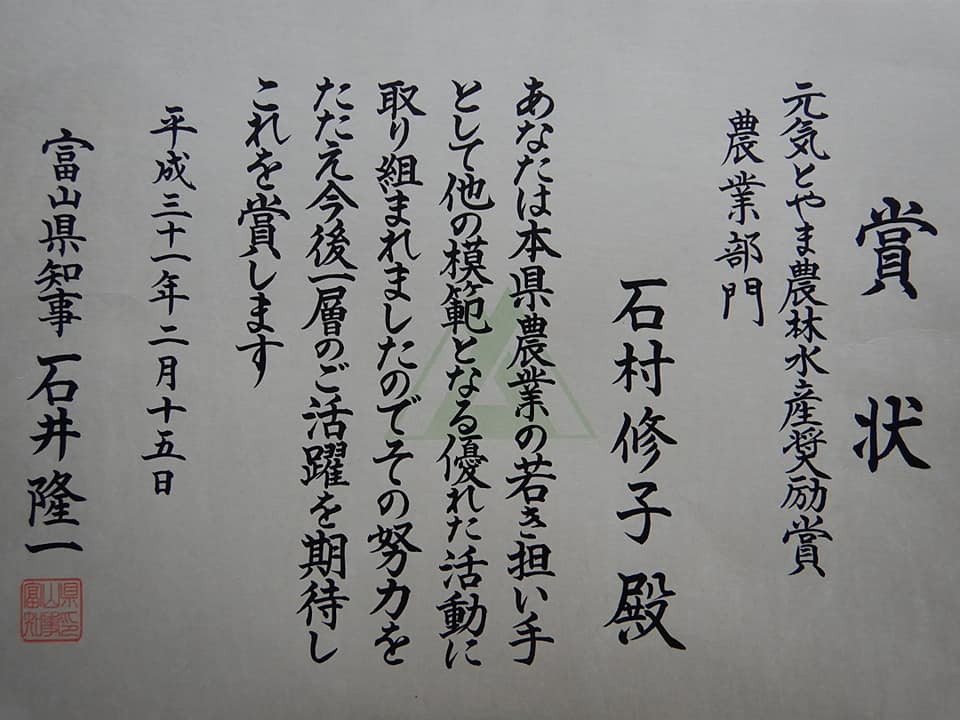 賞状
元気とやま農林水産奨励賞
農業部門
石村修子殿
あなたは本県農業の若き担い手
として他の模範となる優れた活動に
取り組まれましたのでその努力を
たたえ今後一層のご活躍を期待し
これを賞します
平成三十一年二月十五日
富山県知事 石井隆一
富山県知事印